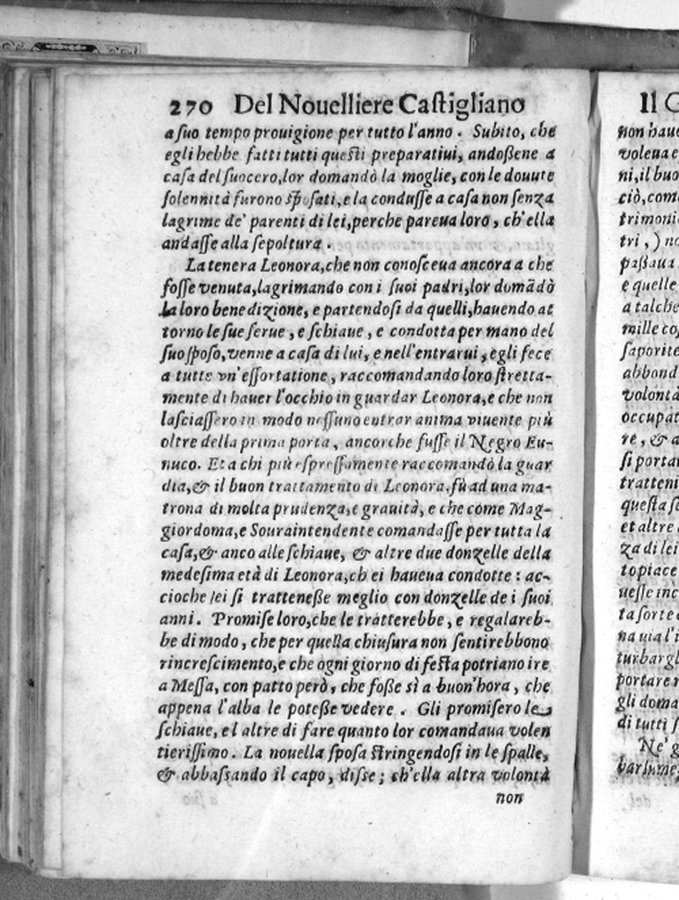 270 Del Nouelliere Castigliano
a suo tempo prouigione per tutto l'anno. Subito, che
egli hebbe fatti tutti questi preparatiui, andoßene a
casa del suocero, lor domandò la moglie, con le douute
solennità furono sposati, e la condusse a casa non senza
lagrime de' parenti di lei, perche pareua loro, ch'ella
andasse alla sepoltura.
La tenera Leonora, che non conosceua ancora a che
fosse venuta, lagrimando con i suoi padri, lor domãdò
la loro benedizione, e partendosi da quelli, hauendo at
torno le sue serue, e schiaue, e condotta per mano del
suo sposo, venne a casa di lui, e nell'entrarui, egli fece
a tutte vn'essortatione, raccomandando loro stretta-
mente di hauer l'occhio in guardar Leonora, e che non
lasciassero in modo nessuno entrar anima viuente più
oltre della prima porta, ancorche fusse il Negro Eu-
nuco. Et a chi più espressamente raccomandò la guar
dia, & il buon trattamento di Leonora, fù ad una ma-
trona di molta prudenza, e grauità, e che come Mag-
giordoma, e Souraintendente comandasse per tutta la
casa, & anco alle schiaue, & altre due donzelle della
medesima età di Leonora, ch ei haueua condotte: ac-
cioche lei si tratteneße meglio con donzelle de i suoi
anni. Promise loro, che le tratterebbe, e regalareb-
be di modo, che per quella chiusura non sentirebbono
rincrescimento, e che ogni giorno di festa potriano ire
a Messa, con patto però, che foße sì a buon'hora, che
appena l'alba le poteße vedere. Gli promisero le
schiaue, e l altre di fare quanto lor comandaua volen
tierissimo. La nouella sposa stringendosi in le spalle,
& abbassando il capo, disse; ch'ella altra volontà
non
Il
non haue
voleua e
ni, il buo
ciò, com
trimoni
tri, ) no
paßaua
e quelle
a talche
mille co
saporite
abbond
volontà
occupat
re, & a
si portar
tratteni
questa s
et altre
za di lei
topiace
uesse inc
ta sorte
na uia l'i
turbargl
portare
gli doma
di tutti s
Ne' g
barlume,